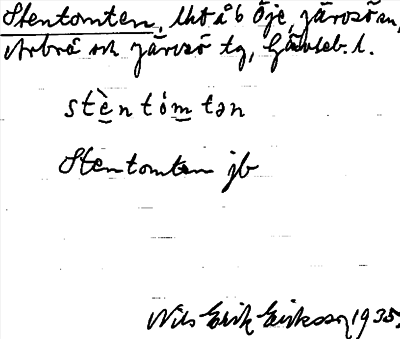 Stentomten, Uto å b Öje, Järvsö sn,
Arbrå och Järvsö tg, Gävleb. l.
stèntómtən
Stentomten jb
Nils Erik Eriksson 1935.